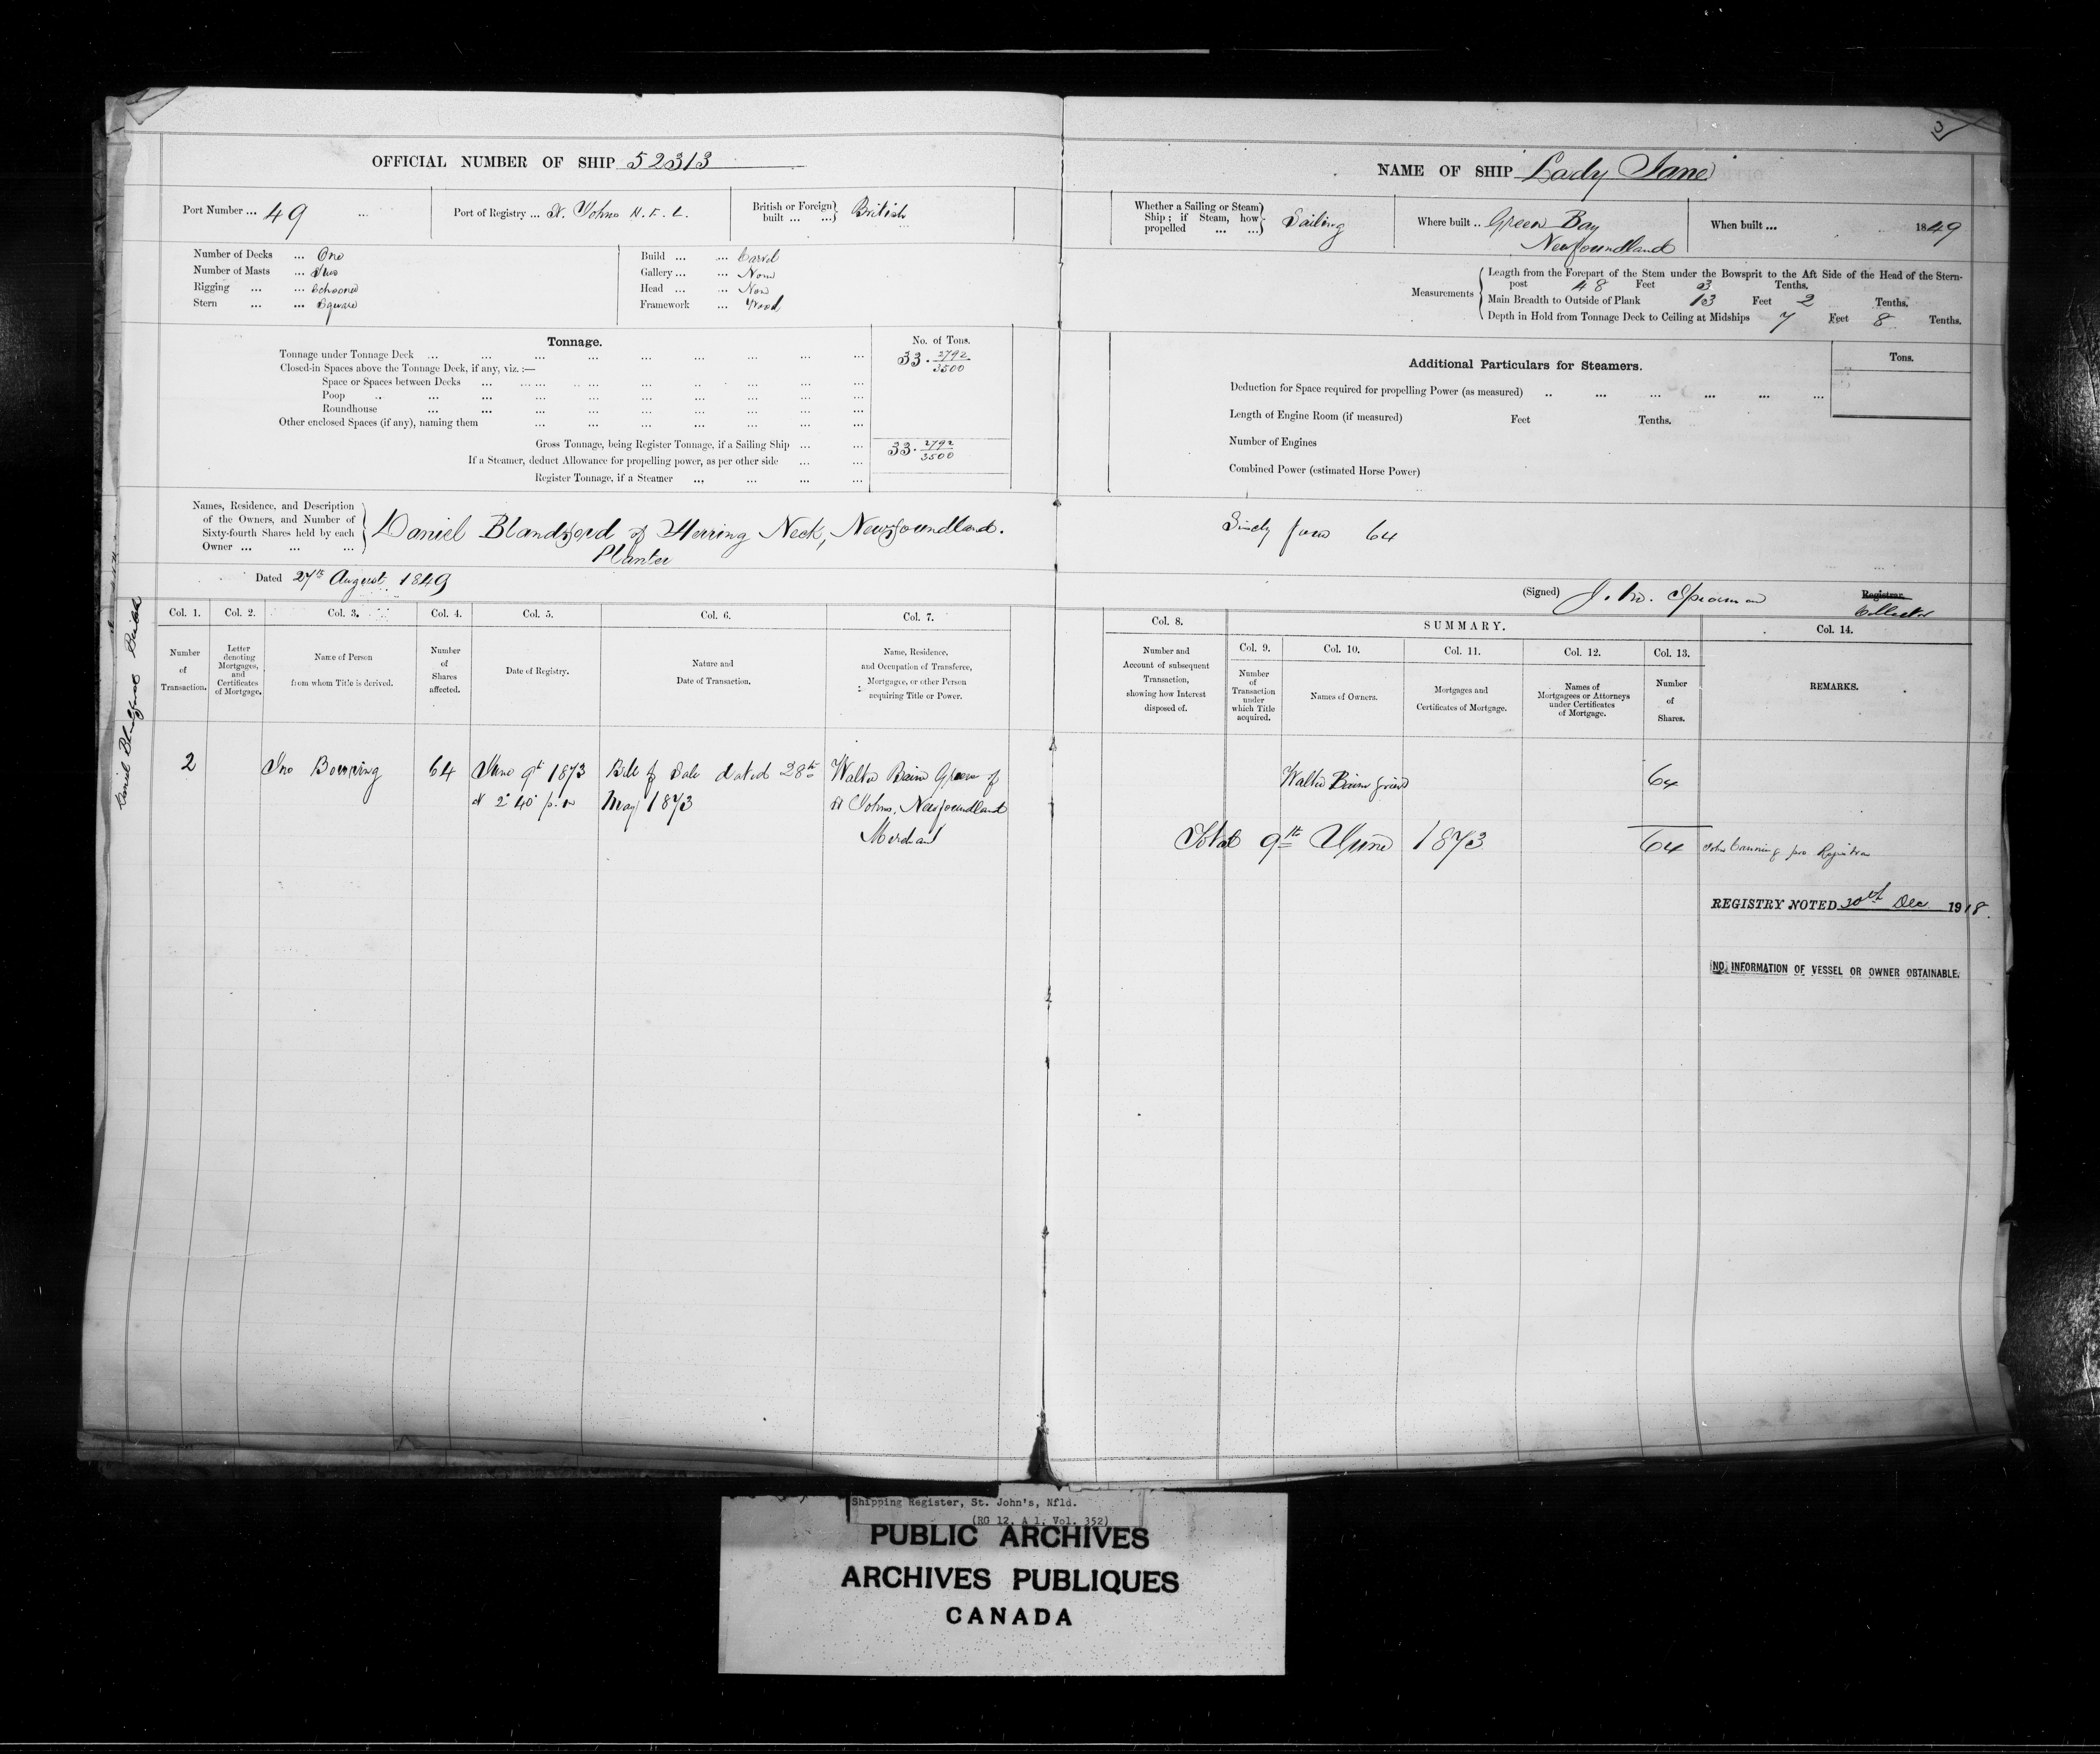 3
OFFICIAL NUMBER OF SHIP 52313
Port Number ... 49 ...
Port of Registry ... St. Johns N. F. L.
British or Foreign built ... ...} British
Number of Decks ... One
Number of Masts ... Two
Rigging ... ... Schooner
Stern ... ... Square
Build ... ... Carvel
Gallery ... ... None
Head ... ... None
Framework ... Wood
Tonnage.
No. of Tons.
Tonnage under Tonnage Deck ... 33. 2792/3500
Closed-in Spaces above the Tonnage Deck, if any, viz. :—
Space or Spaces between Decks ...
Poop ...
Roundhouse ...
Other enclosed Spaces (if any), naming them ...
Gross Tonnage, being Register Tonnage, if a Sailing Ship ... ... 33. 2792/3500
If a Steamer, deduct Allowance for propelling power, as per other side ... ...
Register Tonnage, if a Steamer ... ... ... ...
Names, Residence, and Description
of the Owners, and Number of
Sixty-fourth Shares held by each
Owner ... ... ...
Daniel Blandford of Herring Neck, Newfoundland.
Planter
Dated 27th August 1849
NAME OF SHIP Lady Jane
Whether a Sailing or Steam
Ship ; if Steam, how
propelled ... ...} Sailing
Where built .. Green Bay
Newfoundland
When built ... 1849
Measurements
Length from the Forepart of the Stem under the Bowsprit to the Aft Side of the Head of the Stern-
post 48 Feet 3 Tenths.
Main Breadth to Outside of Plank 13 Feet 2 Tenths,
Depth in Hold from Tonnage Deck to Ceiling at Midships 7 Feet 8 Tenths.
Additional Particulars for Steamers.
Tons.
Deduction for Space required for propelling Power (as measured) ..
Length of Engine Room (if measured) Feet Tenths.
Number of Engines
Combined Power (estimated Horse Power)
Sixty four 64
(Signed) J. M. Spearman
Registrar.
Collector
Daniel Blandford
Col. 1. Col. 2. Col. 3. Col. 4. Col. 5. Col. 6. Col. 7.
Number
of
Transaction.
Letter
denoting
Mortgages,
and
Certificates
of Mortgage.
Name of Person
from whom Title is derived.
Number
of
Shares
affected.
Date of Registry.
Nature and
Date of Transaction.
Name, Residence,
and Occupation of Transferee,
Mortgagee, or other Person
acquiring Title or Power.
2 Jno Bowring 64 June 9th 1873 Bill of Sale dated 28th Walter Baine Grieve of
at 2 40 p. m May 1873 St Johns, Newfoundland
Merchant
Col. 8. SUMMARY. Col. 14.
Col. 9. Col. 10. Col. 11. Col. 12. Col. 13.
Number and
Account of subsequent
Transaction,
showing how Interest
disposed of.
Number
of
Transaction
under
which Title
acquired.
Names of Owners.
Mortgages and
Certificates of Mortgage.
Names of
Mortgagees or Attorneys
under Certificates
of Mortgage.
Number
of
Shares.
REMARKS.
Walter Baine Grieve 64
Total 9th June 1873 64 John Canning pro Registrar
REGISTRY NOTED 30th Dec 1918.
NO INFORMATION OF VESSEL OR OWNER OBTAINABLE.
Shipping Register, St. John's, Nfld.
(RG 12, A 1, Vol. 352)
PUBLIC ARCHIVES
ARCHIVES PUBLIQUES
CANADA